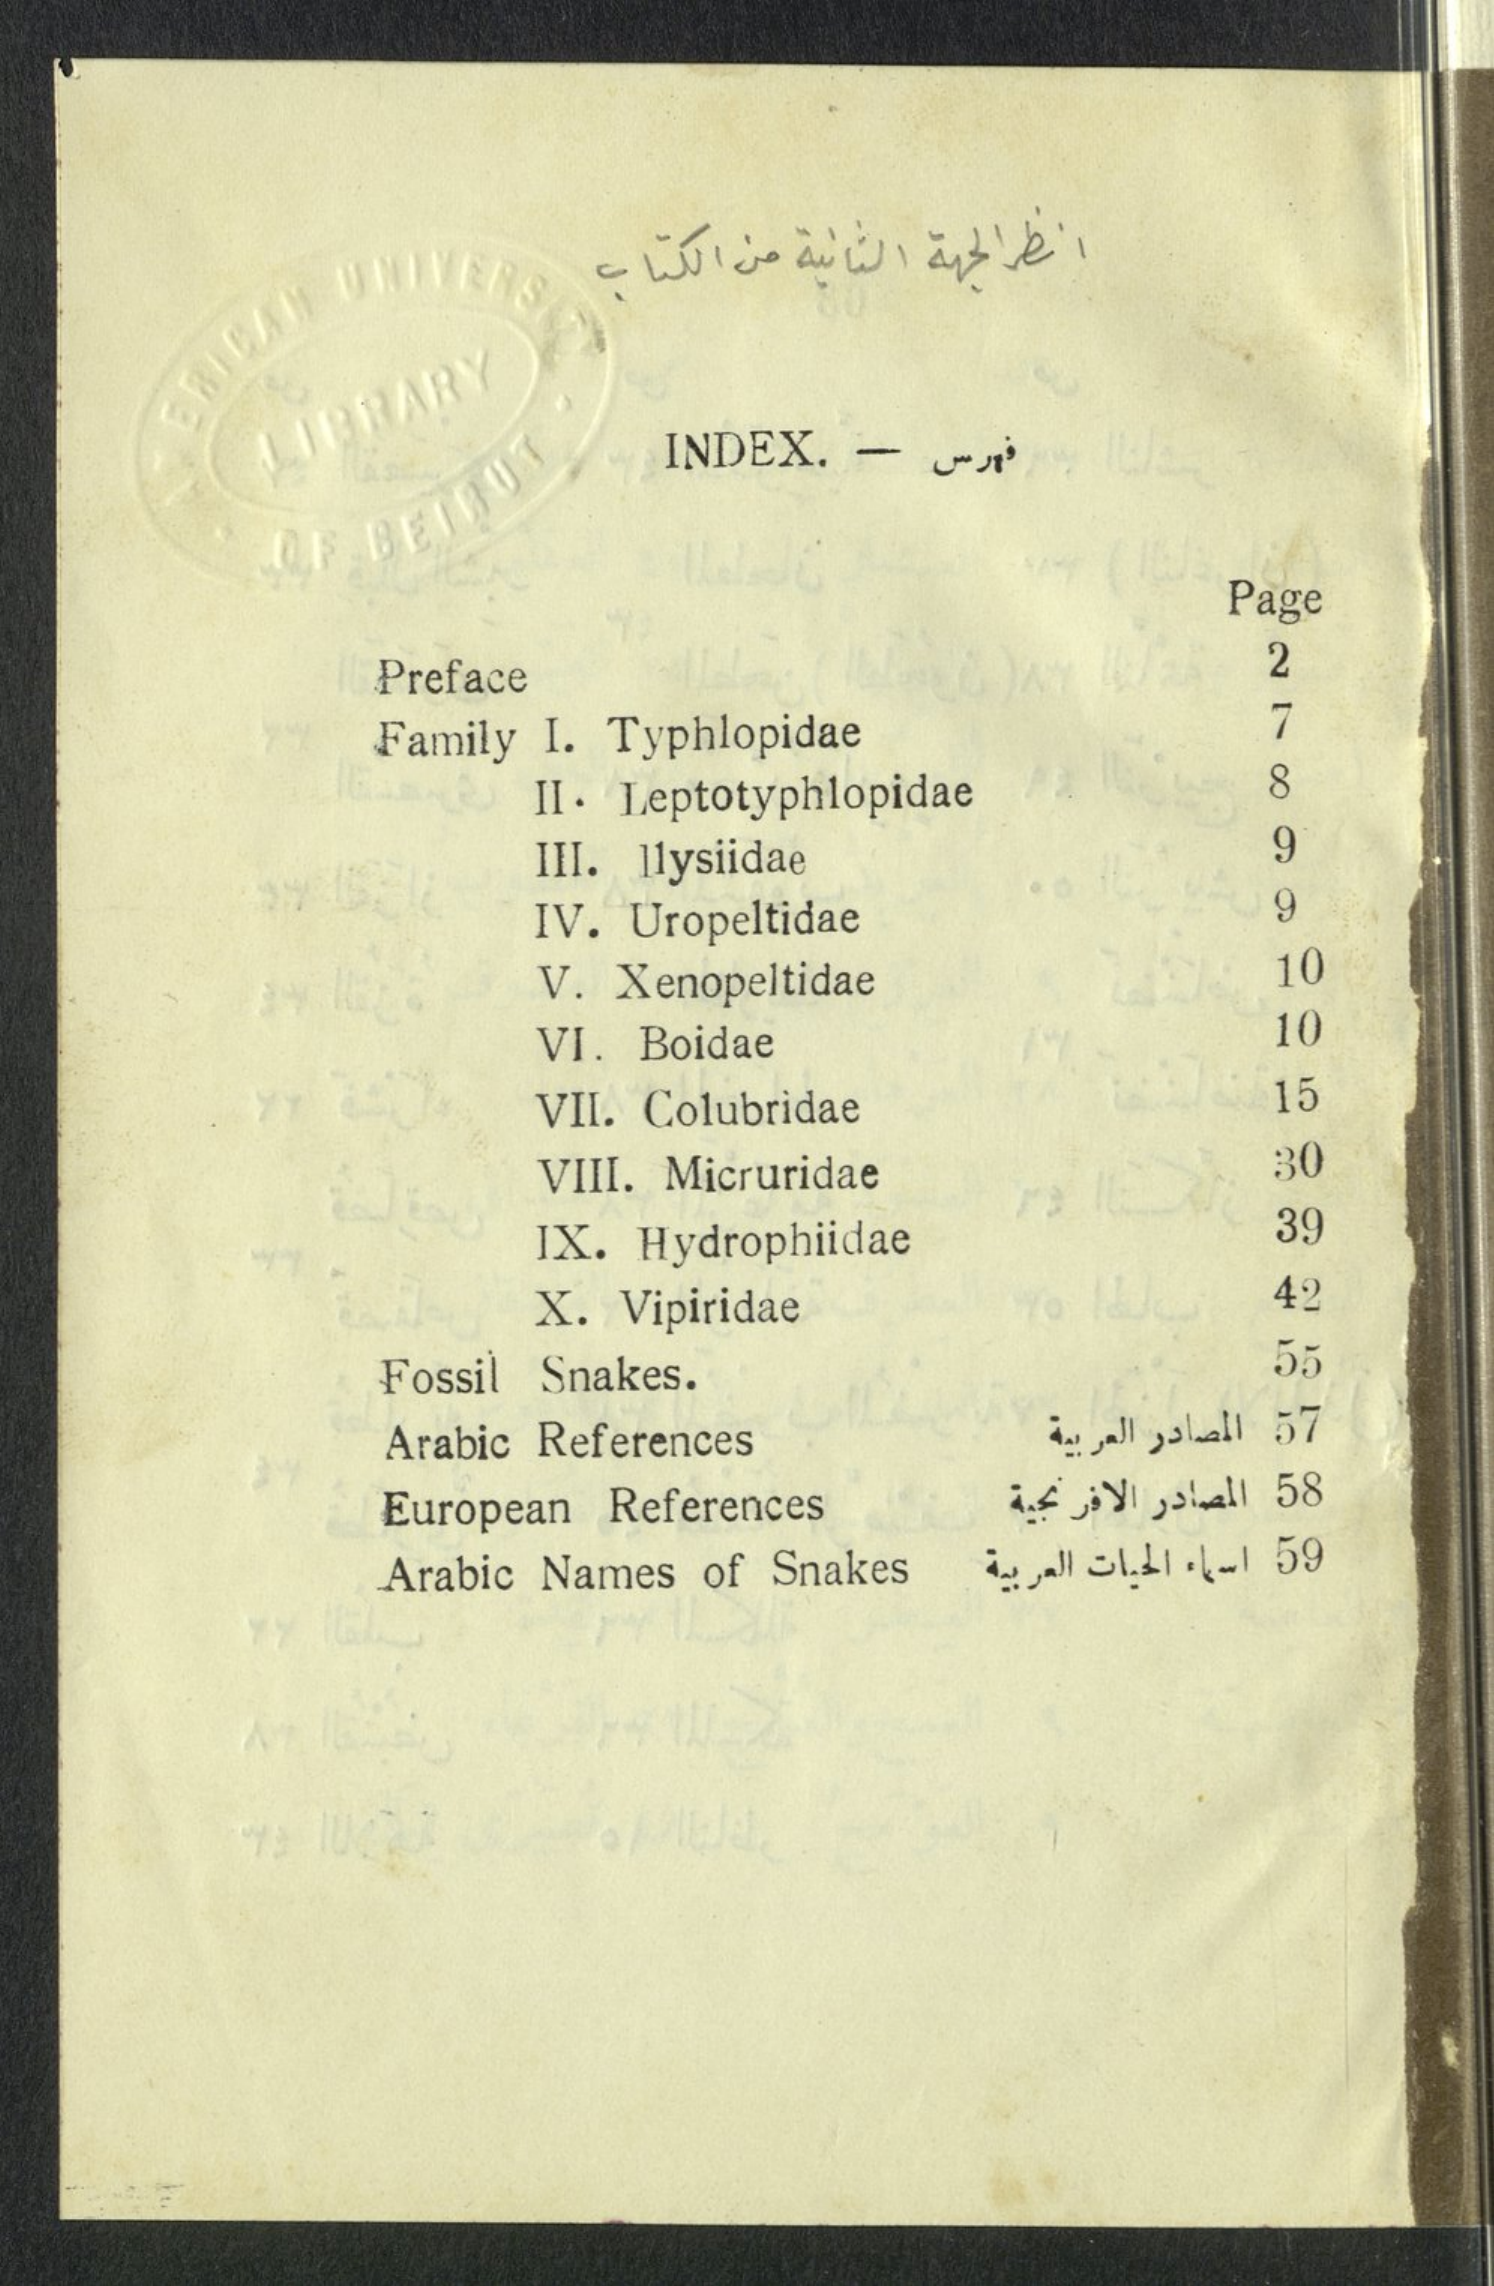 انظر الجهة الثانية من الكتاب
AMERICAN UNIVERSITY
LIBRARY
OF BEIRUT
INDEX. — فهرس
Page
Preface 2
Family I. Typhlopidae 7
II. Leptotyphlopidae 8
III. Ilysiidae 9
IV. Uropeltidae 9
V. Xenopeltidae 10
VI. Boidae 10
VII. Colubridae 15
VIII. Micruridae 30
IX. Hydrophiidae 39
X. Vipiridae 42
Fossil Snakes. 55
Arabic References المصادر العربية 57
European References المصادر الافرنجية 58
Arabic Names of Snakes اسماء الحيات العربية 59